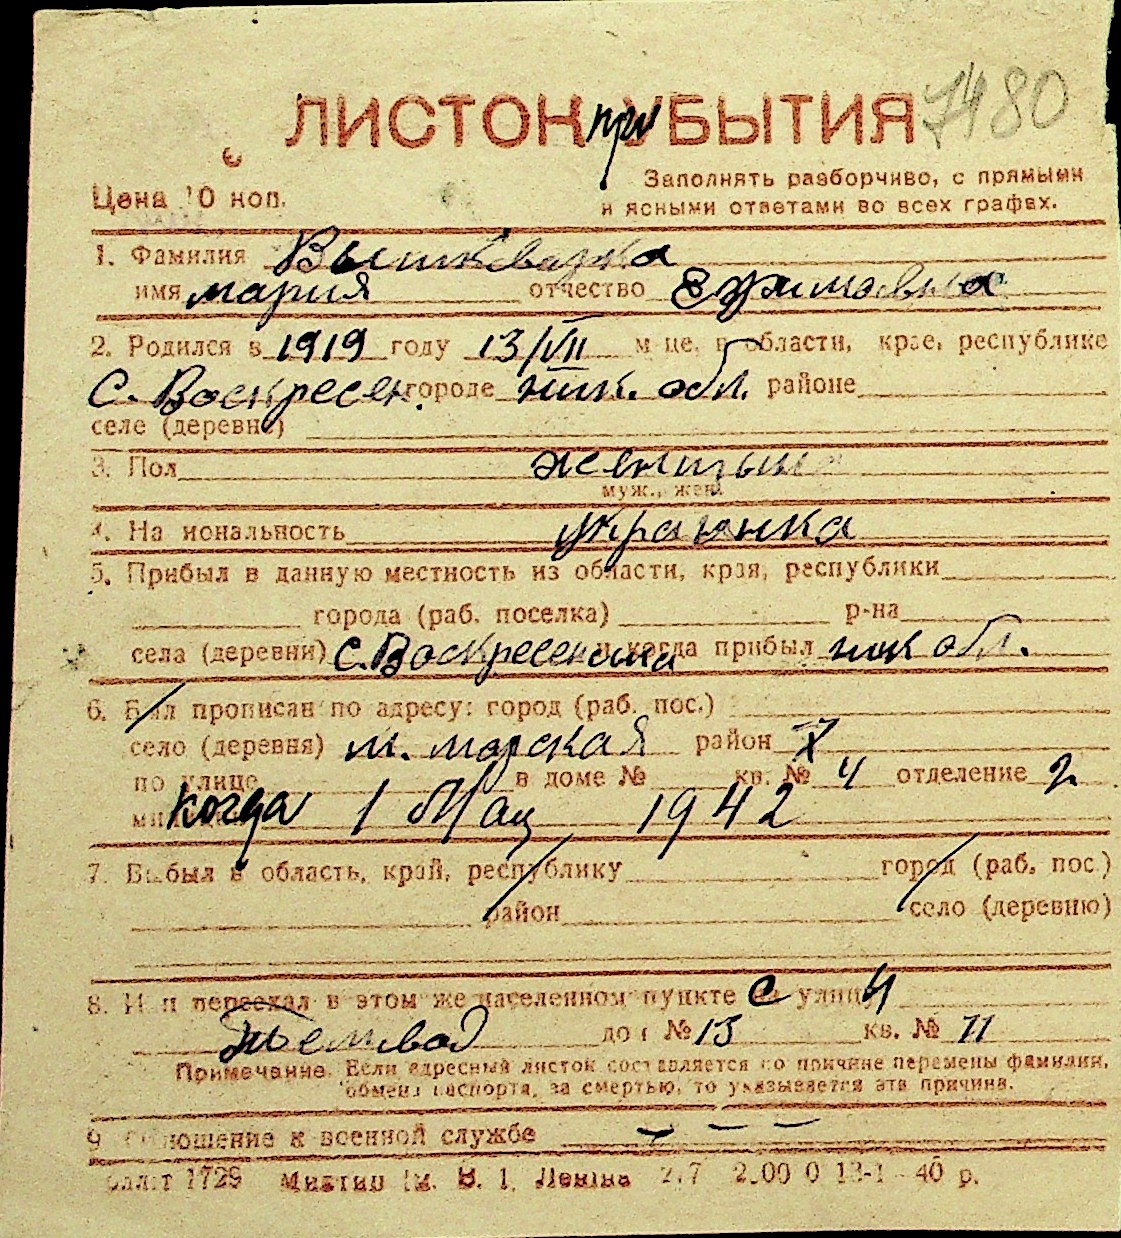 ЛИСТОК при УБЫТИЯ 7480
Цена 10 коп.
Заполнять разборчиво, с прямыми
и ясными ответами во всех графах.
1. Фамилия
имя Мария отчество Ефимовна
2. Родился в 1919 году 13/VII м-це, в области, крае, республике
С. Воскресен. городе ник. обл. районе
селе (деревне)
3. Пол женщына
муж., жен.
4. Национальность украинка
5. Прибыл в данную местность из области, края, республики
города (раб. поселка) р-на
села (деревни) С. Воскресенска и когда прибыл ник обл.
6. Был прописан по адресу: город (раб. пос.)
село (деревня) м. морская район
по улице в доме № кв. № 4 отделение 2
когда 1 Мая 1942
7. Выбыл в область, край, республику город (раб. пос.)
район село (деревню)
8. Или переехал в этом же населенном пункте с на улицу
дом № 13 кв. № 11
Примечание. Если адресный листок составляется по причине перемены фамилии,
обмена паспорта, за смертью, то указывается эта причина.
9. Отношение к военной службе — — —
1729 им. В. И. Ленина